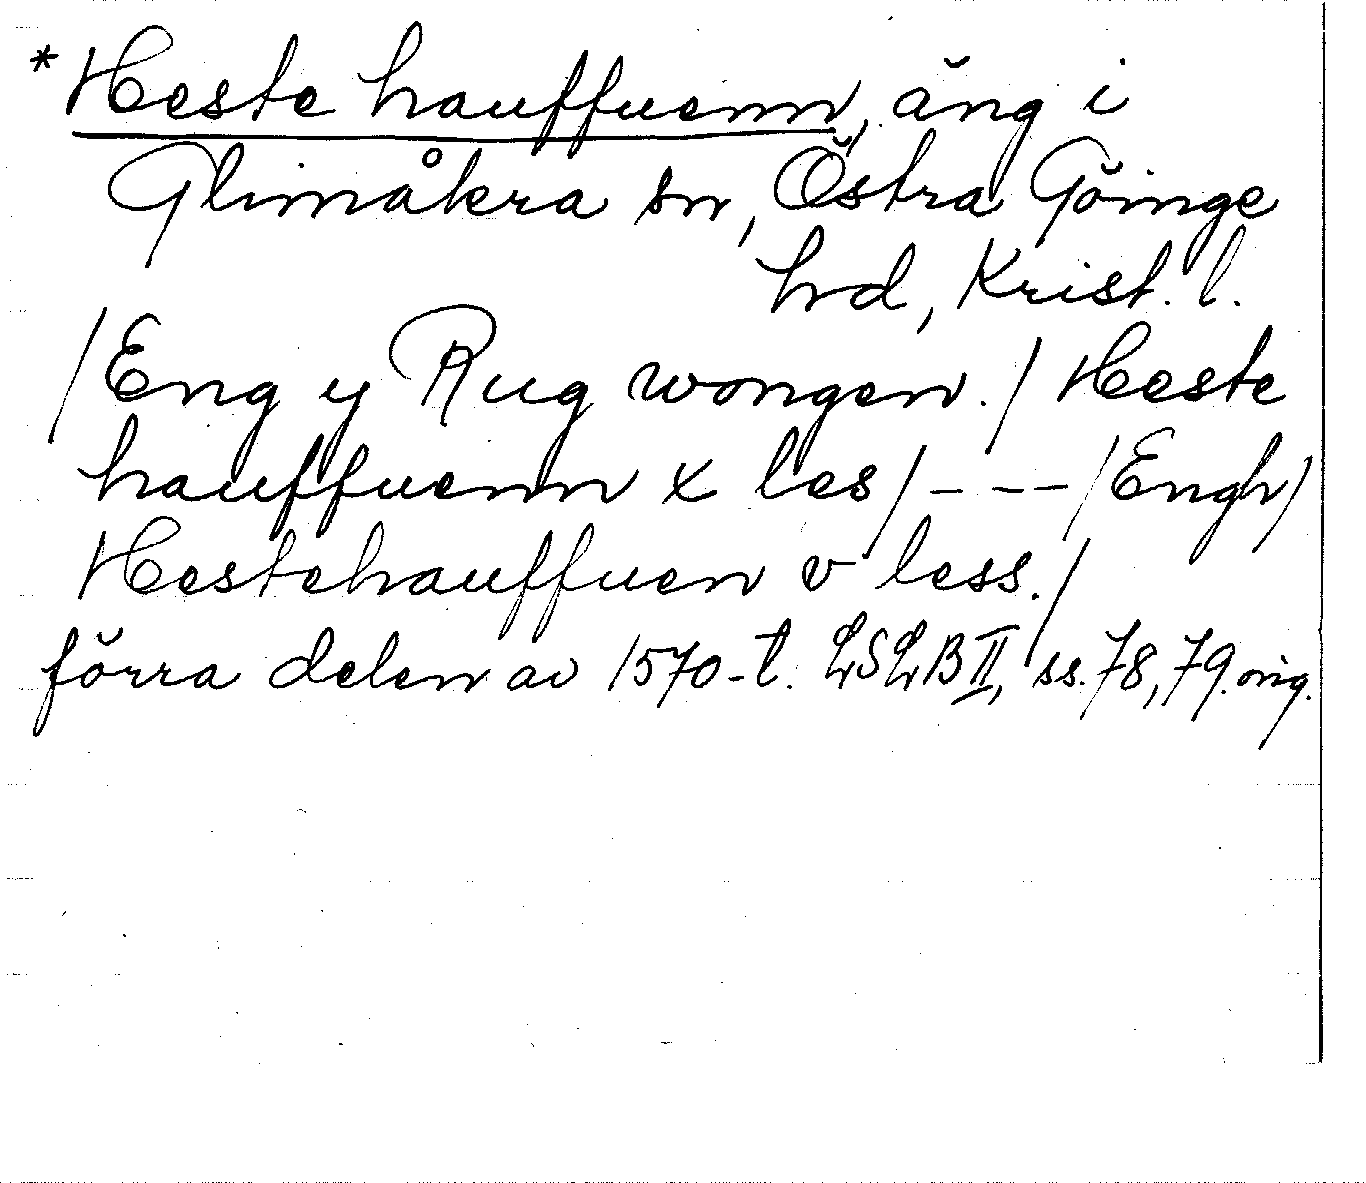 *Heste hauffuenn, äng i
Glimåkra sn, Östra Göinge
hrd, Krist. l.
/Eng y Rug wongen./ Heste
hauffuenn x les/ - - - /Engh/
Hestehauffuen v less./
förra delen av 1570-t. LSLB II, ss. 78, 79. orig.